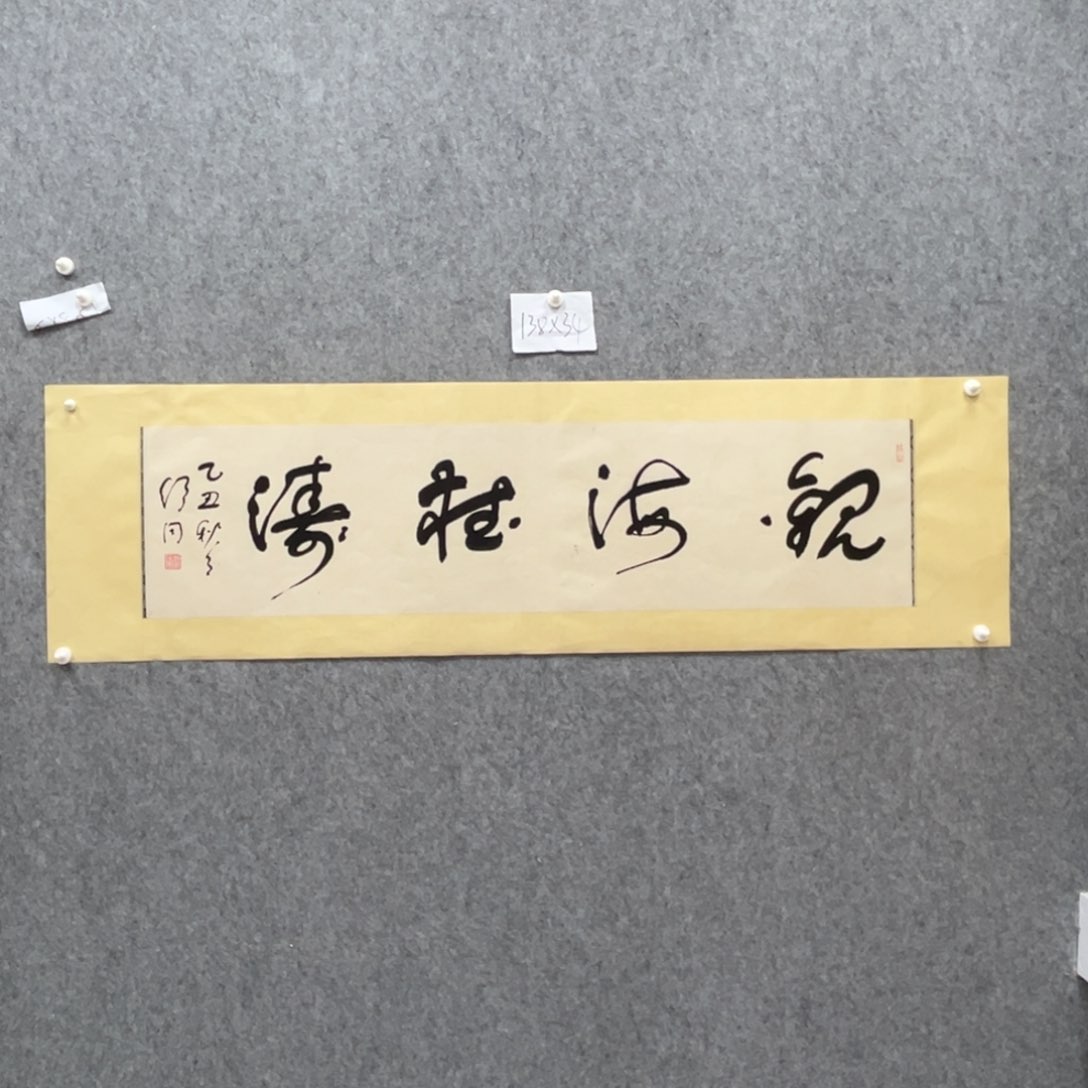 138×34
觀海聽濤
乙丑秋月
舒同